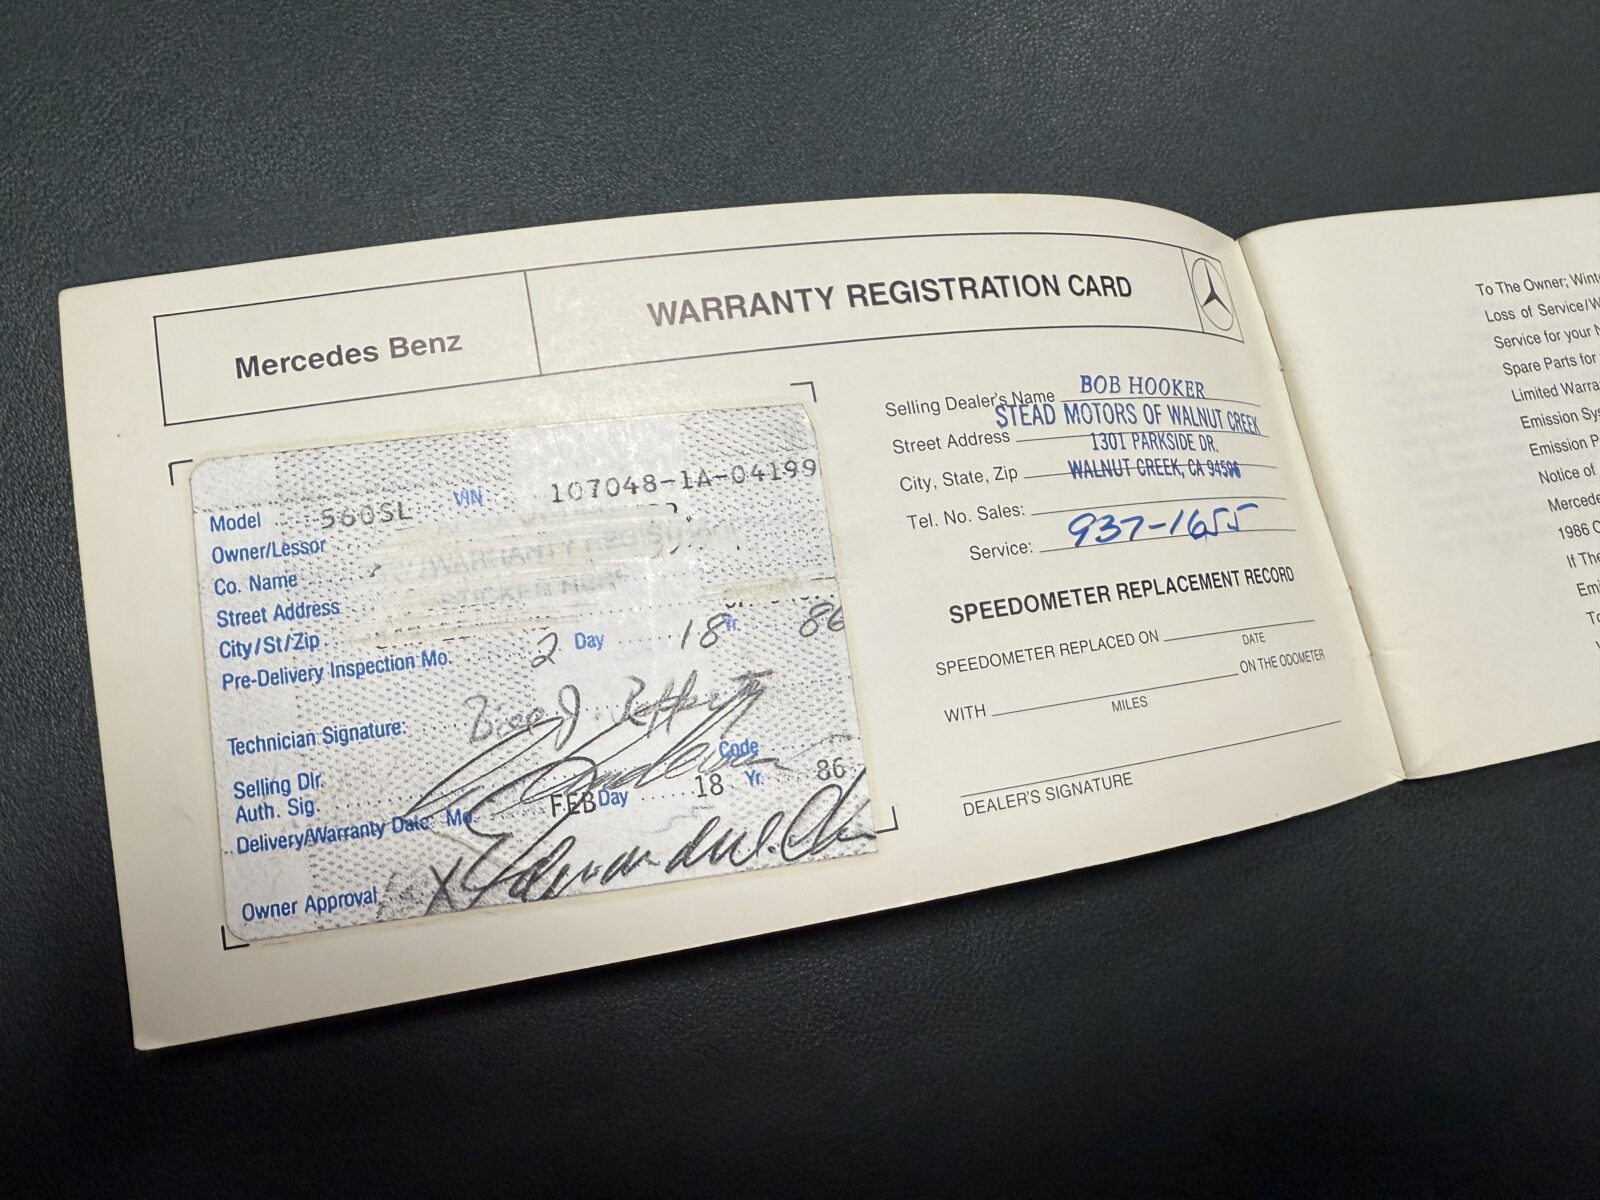 Mercedes Benz
WARRANTY REGISTRATION CARD
Model 560SL VIN 107048-1A-04199
Owner/Lessor
WARRANTY REGISTRATION
Co. Name
STICKER HERE
Street Address
City/St/Zip
Pre-Delivery Inspection Mo. 2 Day 18 Yr. 86
Technician Signature:
Code
Selling Dlr.
Auth. Sig.
Delivery/Warranty Date: Mo. FEB Day 18 Yr. 86
Owner Approval X
Selling Dealer's Name BOB HOOKER
STEAD MOTORS OF WALNUT CREEK
Street Address 1301 PARKSIDE DR.
City, State, Zip WALNUT CREEK, CA 94596
Tel. No. Sales:
Service: 937-1655
SPEEDOMETER REPLACEMENT RECORD
SPEEDOMETER REPLACED ON
DATE
WITH ON THE ODOMETER
MILES
DEALER'S SIGNATURE
To The Owner;
Loss of
Service for your
Spare Parts for
Limited
Emission
Emission
Notice of
1986
If
To